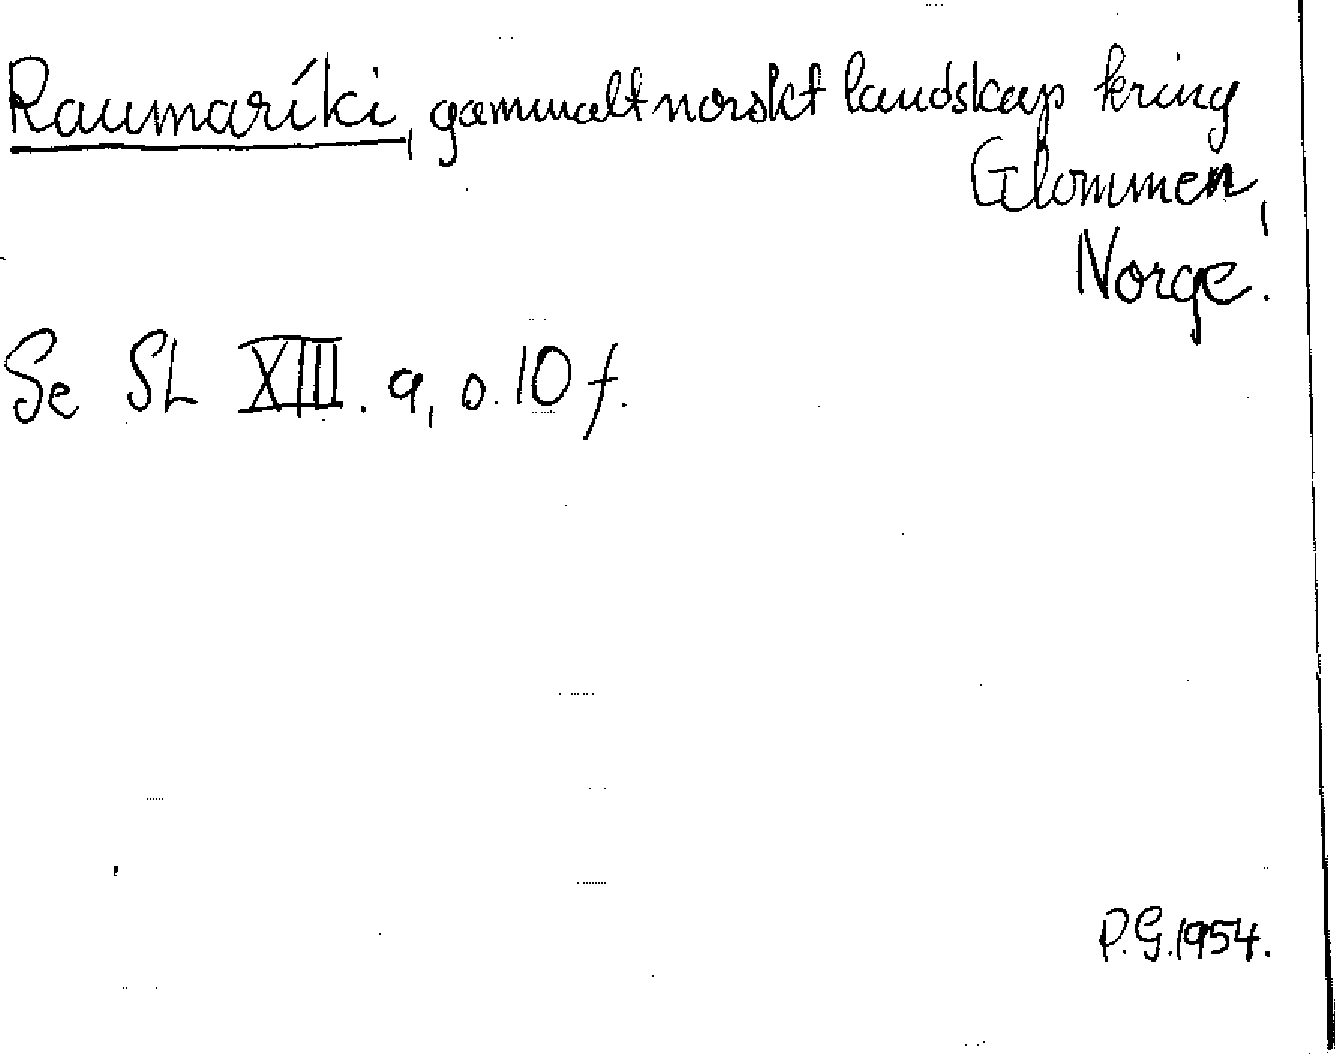 Raumaríki, gammalt norskt landskap kring
Glommen,
Norge.
Se SL XIII. a, s. 10 f.
P.G. 1954.